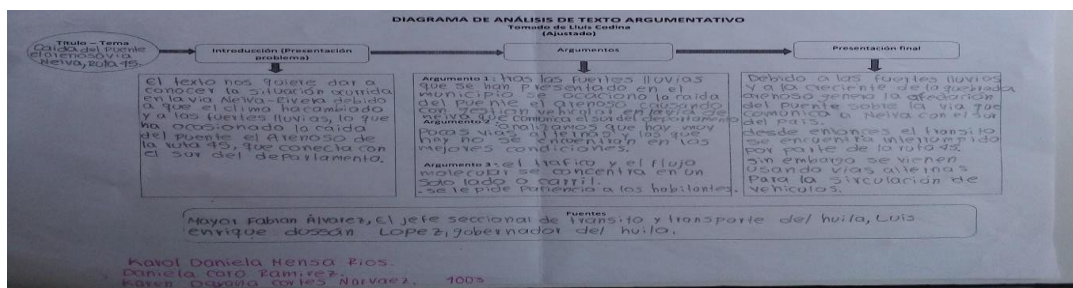 DIAGRAMA DE ANÁLISIS DE TEXTO ARGUMENTATIVO
Tomado de Lluís Codina
(Ajustado)
Título – Tema
Caida del puente
el arenoso via
Neiva, Ruta 45.
Introducción (Presentación
problema)
El texto nos quiere dar a
conocer la situación ocurrida
en la via Neiva-Rivera debido
a que el clima ha cambiado
y a las fuertes lluvias, lo que
ha ocasionado la caida
del puente el Arenoso de
la ruta 45, que conecta con
el sur del departamento.
Argumentos
Argumento 1: tras las fuertes lluvias
que se han presentado en el
municipio se ocaciono la caida
del puente el arenoso causando
con gestion vehicular en la via de
neiva que comunica el sur del departamento
Argumento 2
analizamos que hay muy
Pocas vias alternas y las que
hay no se encuentran en las
mejores condiciones.
Argumento 3: el trafico y el flujo
molecular se concentra en un
solo lado o carril.
. se le pide paciencia a los habitantes.
Presentación final
Debido a las fuertes lluvias
y a la creciente de la quebrada
arenoso genera la afectación
del puente sobre la via que
comunica a Neiva con el sur
del País.
desde entonces el transito
se encuentra interrumpido
por parte de la ruta 45.
sin embargo se vienen
usando vias alternas
Para la circulación de
vehiculos.
Fuentes
Mayor Fabian Álvarez, El jefe seccional de transito y transporte del huila, Luis
enrique dussán Lopez, gobernador del huila.
Karol Daniela Mensa Rios.
Daniela Caro Ramirez.
Karen Cortes Narvaez. 1003